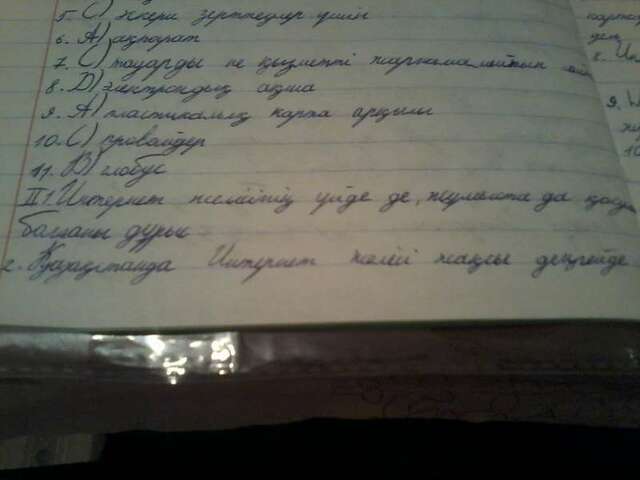 5. С) әскери зерттеулер үшін
6. А) ақпарат
7. С) тауарды не қызметті жарнамалайтын
8. D) электрондық ақша
9. А) пластикалық карта арқылы
10. С) провайдер
11. В) глобус
II 1. Интернет желісінің үйде де, жұмыста да
бағаны дұрыс
2. Қазақстанда Интернет желісі жақсы деңгейде
9.
10